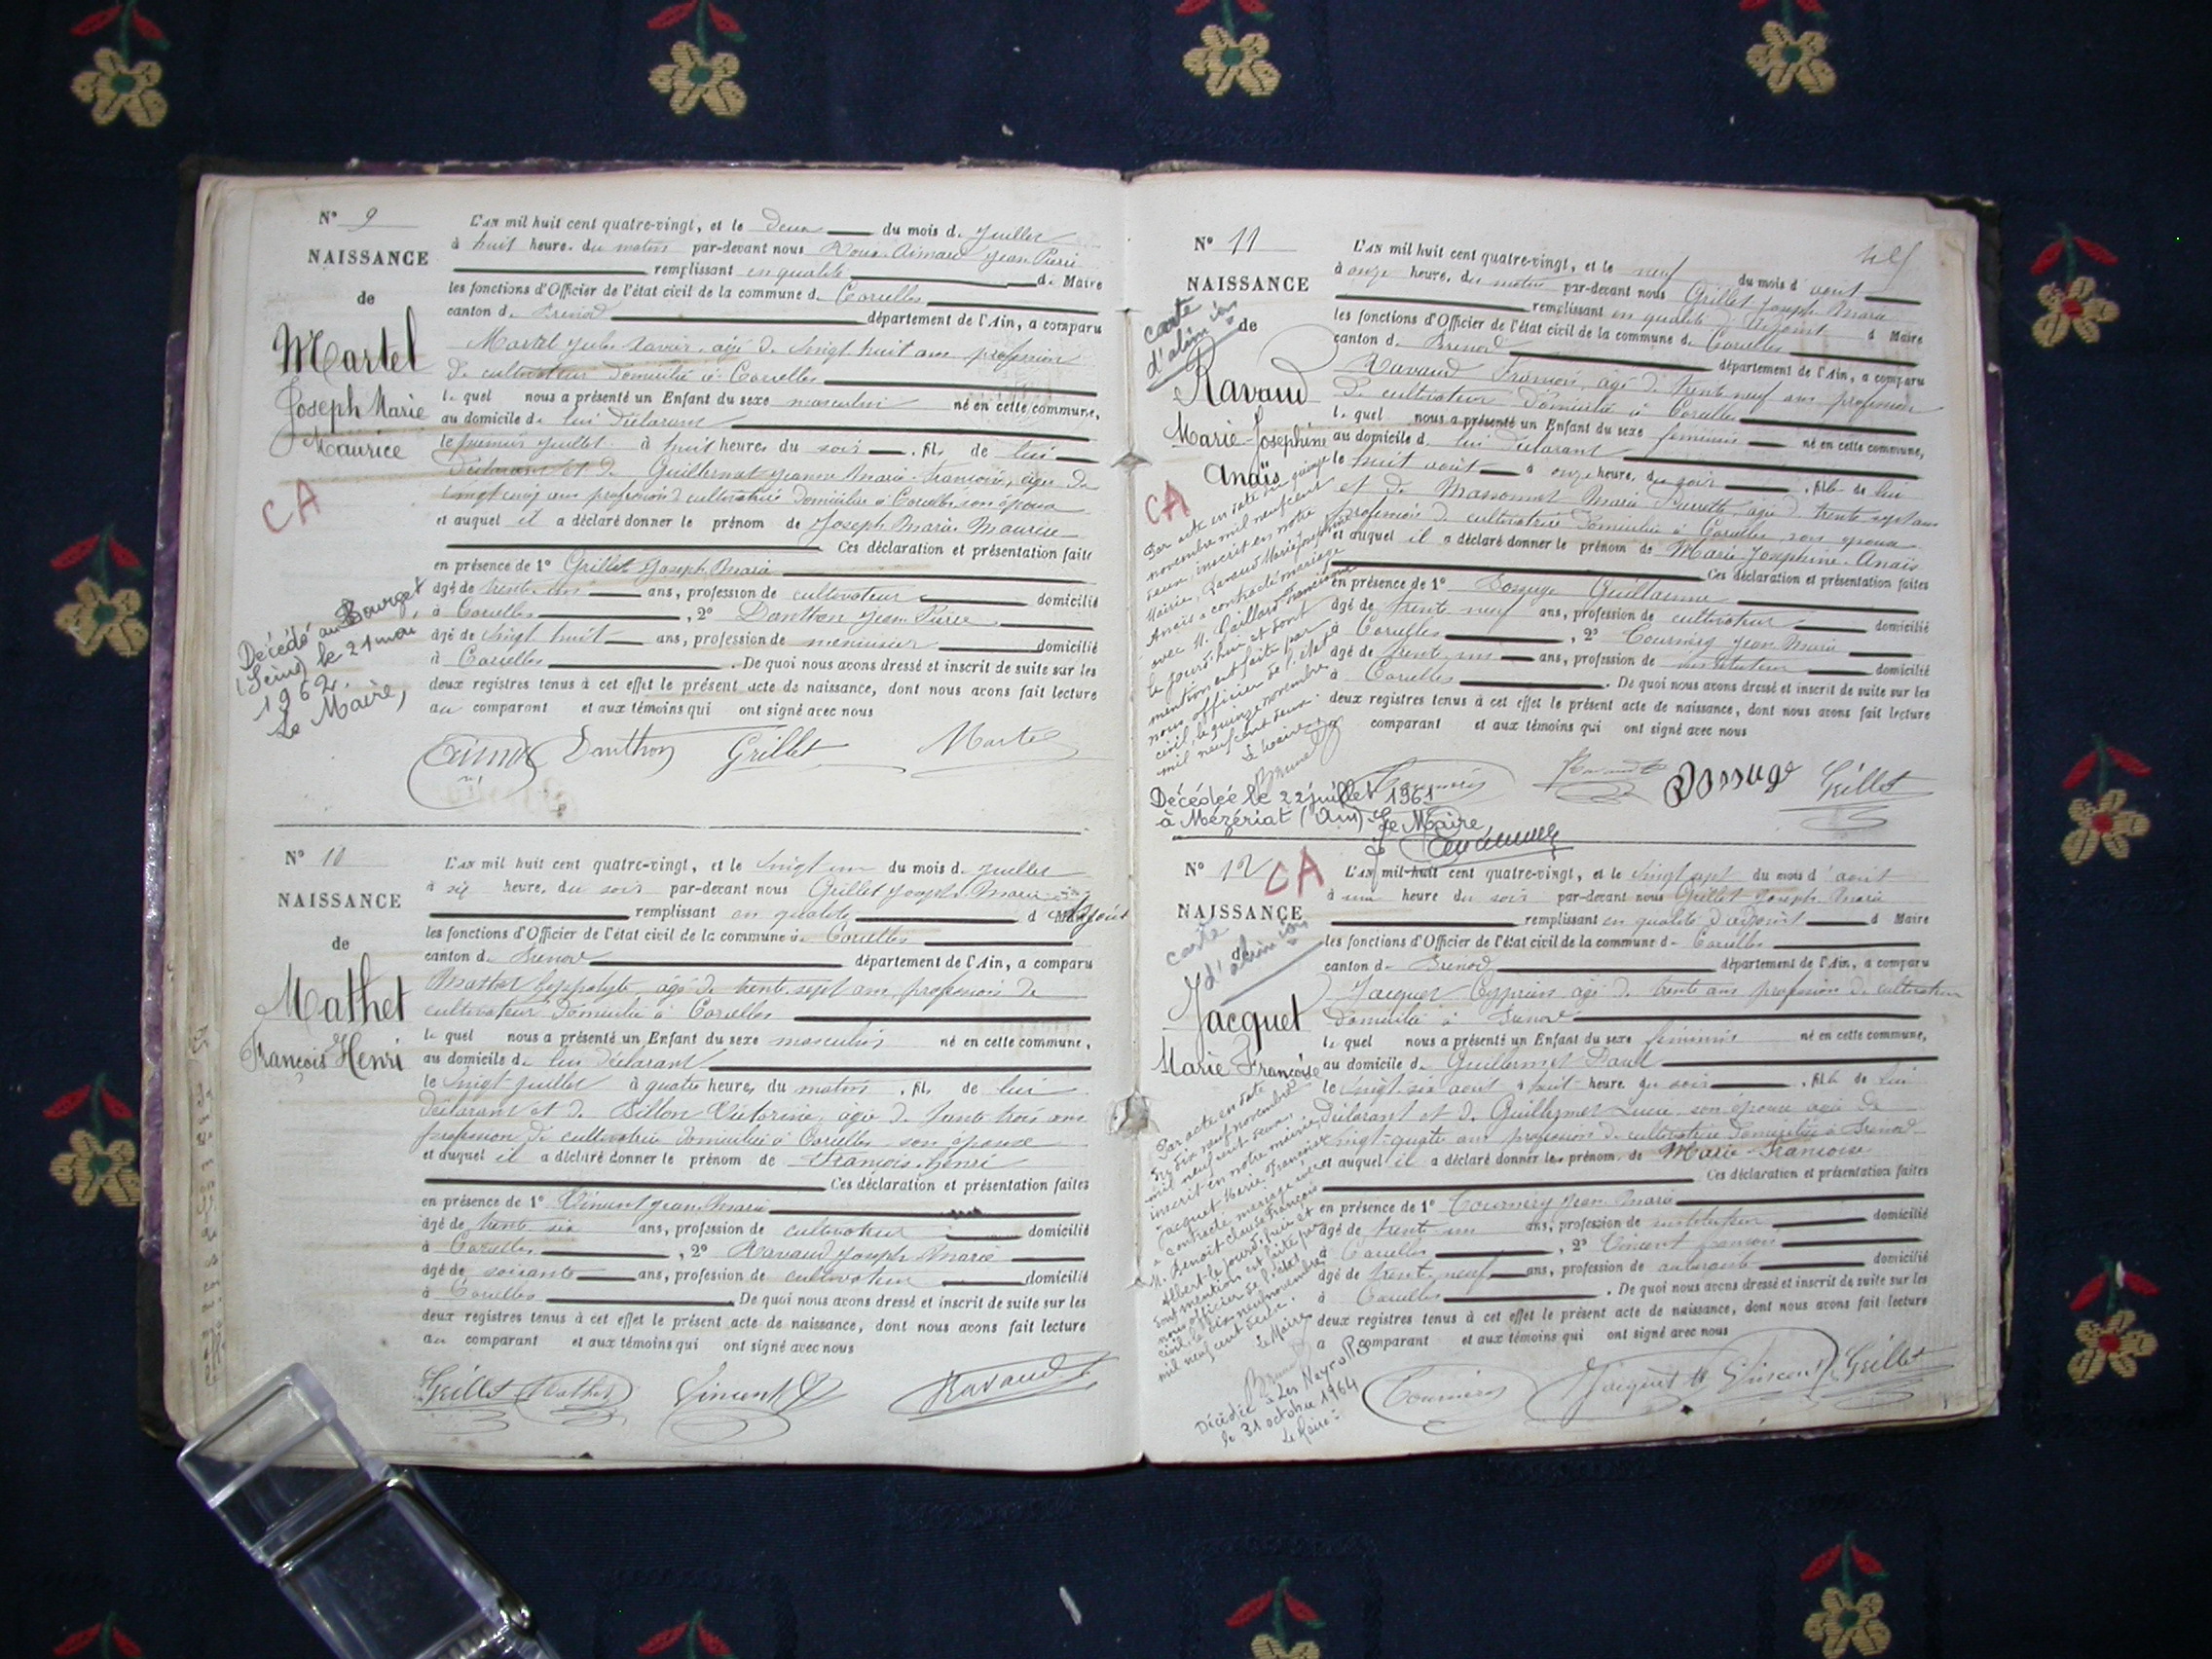 N° 9
NAISSANCE
de
Martel
Joseph Marie
Maurice
CA
Décédé au Bourget
(Seine) le 21 mai
1962.
Le Maire,
L'AN mil huit cent quatre-vingt, et le deux du mois de juillet
à huit heures du matin par-devant nous Aimard Jean Pierre
remplissant en qualité de Maire
les fonctions d'Officier de l'état civil de la commune de Corcelles
canton de Brenod département de l'Ain, a comparu
Martel Jules Xavier, âgé de vingt huit ans profession
de cultivateur domicilié à Corcelles
lequel nous a présenté un Enfant du sexe masculin né en cette commune,
au domicile de lui déclarant
le premier juillet à huit heures du soir, fils de lui
déclarant et de Guillermet Jeanne Marie Françoise, âgée de
vingt cinq ans profession de cultivatrice domiciliée à Corcelles son épouse
et auquel il a déclaré donner le prénom de Joseph Marie Maurice
Ces déclaration et présentation faite
en présence de 1° Grillet Joseph Marie
âgé de trente un ans, profession de cultivateur domicilié
à Corcelles, 2° Danthon Jean Pierre
âgé de vingt huit ans, profession de menuisier domicilié
à Corcelles. De quoi nous avons dressé et inscrit de suite sur les
deux registres tenus à cet effet le présent acte de naissance, dont nous avons fait lecture
au comparant et aux témoins qui ont signé avec nous
Aimard Danthon Grillet Martel
N° 10
NAISSANCE
de
Mathet
François Henri
L'AN mil huit cent quatre-vingt, et le vingt un du mois de juillet
à six heures du soir par-devant nous Grillet Joseph Marie
remplissant en qualité d Adjoint
les fonctions d'Officier de l'état civil de la commune de Corcelles
canton de Brenod département de l'Ain, a comparu
Mathet hyppolyte âgé de trente sept ans, profession de
cultivateur domicilié à Corcelles
lequel nous a présenté un Enfant du sexe masculin né en cette commune,
au domicile de lui déclarant
le vingt juillet à quatre heures du matin, fils de lui
déclarant et de Billon Victorine, âgée de trente trois ans
profession de cultivatrice domiciliée à Corcelles son épouse
et auquel il a déclaré donner le prénom de François henri
Ces déclaration et présentation faites
en présence de 1° Vincent Jean Marie
âgé de trente six ans, profession de cultivateur domicilié
à Corcelles, 2° Ravaud Joseph Marie
âgé de soixante ans, profession de cultivateur domicilié
à Corcelles De quoi nous avons dressé et inscrit de suite sur les
deux registres tenus à cet effet le présent acte de naissance, dont nous avons fait lecture
au comparant et aux témoins qui ont signé avec nous
Grillet Mathet Vincent Ravaud
N° 11
NAISSANCE
de
carte
d'alim
Ravaud
Marie-Joséphine
Anaïs
CA
Par acte en date du quinze
novembre mil neuf cent
deux, inscrit en notre
Mairie, Ravaud Marie Joséphine
Anaïs a contracté mariage
avec M. Gaillard François
le jourd'hui et dont
mention est faite par
nous officier de l'état
civil, le quinze novembre
mil neuf cent deux.
Le Maire
Brunet
Décédée le 22 juillet 1961
à Mézériat (Ain). Le Maire
L'AN mil huit cent quatre-vingt, et le neuf du mois d'août
à onze heures du matin par-devant nous Grillet Joseph Marie
remplissant en qualité d'Adjoint d Maire
les fonctions d'Officier de l'état civil de la commune de Corcelles
canton de Brenod département de l'Ain, a comparu
Ravaud François, âgé de trente neuf ans profession
de cultivateur domicilié à Corcelles
lequel nous a présenté un Enfant du sexe féminin né en cette commune,
au domicile de lui déclarant
le huit août à onze heures du soir, fille de lui
et de Massonnet Marie Pierrette, âgée de trente sept ans
profession de cultivatrice domiciliée à Corcelles, son épouse
et auquel il a déclaré donner le prénom de Marie Joséphine Anaïs
Ces déclaration et présentation faites
en présence de 1° Bossuge Guillaume
âgé de trente neuf ans, profession de cultivateur domicilié
à Corcelles, 2° Jean Marie
âgé de trente un ans, profession de instituteur domicilié
à Corcelles. De quoi nous avons dressé et inscrit de suite sur les
deux registres tenus à cet effet le présent acte de naissance, dont nous avons fait lecture
comparant et aux témoins qui ont signé avec nous
Ravaud Bossuge Grillet
N° 12
CA
NAISSANCE
de
carte
d'alim
Jacquet
Marie Françoise
Par acte en date
du dix neuf novembre
mil neuf cent deux,
inscrit en notre mairie,
Jacquet Marie Françoise
a contracté mariage avec
M. Benoît Claude François
Albert le jourd'hui et
dont mention est faite par
nous officier de l'état
civil le dix neuf novembre
mil neuf cent deux.
Le Maire
Brunet
Décédée à Les Neyrolles
le 31 octobre 1964
Le Maire:
L'AN mil huit cent quatre-vingt, et le vingt sept du mois d'août
à une heure du soir par-devant nous Grillet Joseph Marie
remplissant en qualité d'adjoint d Maire
les fonctions d'Officier de l'état civil de la commune de Corcelles
canton de Brenod département de l'Ain, a comparu
Jacquet Cyprien âgé de trente ans profession de cultivateur
domicilié à Brenod
lequel nous a présenté un Enfant du sexe féminin né en cette commune,
au domicile de Guillermet David
le vingt-six août à huit heures du soir, fille de lui
déclarant et de Guillermet Lucie son épouse âgée de
vingt-quatre ans profession de cultivatrice domiciliée à Brenod
et auquel il a déclaré donner les prénom de Marie Françoise
Ces déclaration et présentation faites
en présence de 1° Jean Marie
âgé de trente-un ans, profession de instituteur domicilié
à Corcelles, 2° Vincent François
âgé de trente neuf ans, profession de aubergiste domicilié
à Corcelles. De quoi nous avons dressé et inscrit de suite sur les
deux registres tenus à cet effet le présent acte de naissance, dont nous avons fait lecture
a comparant et aux témoins qui ont signé avec nous
Jacquet Vincent Grillet